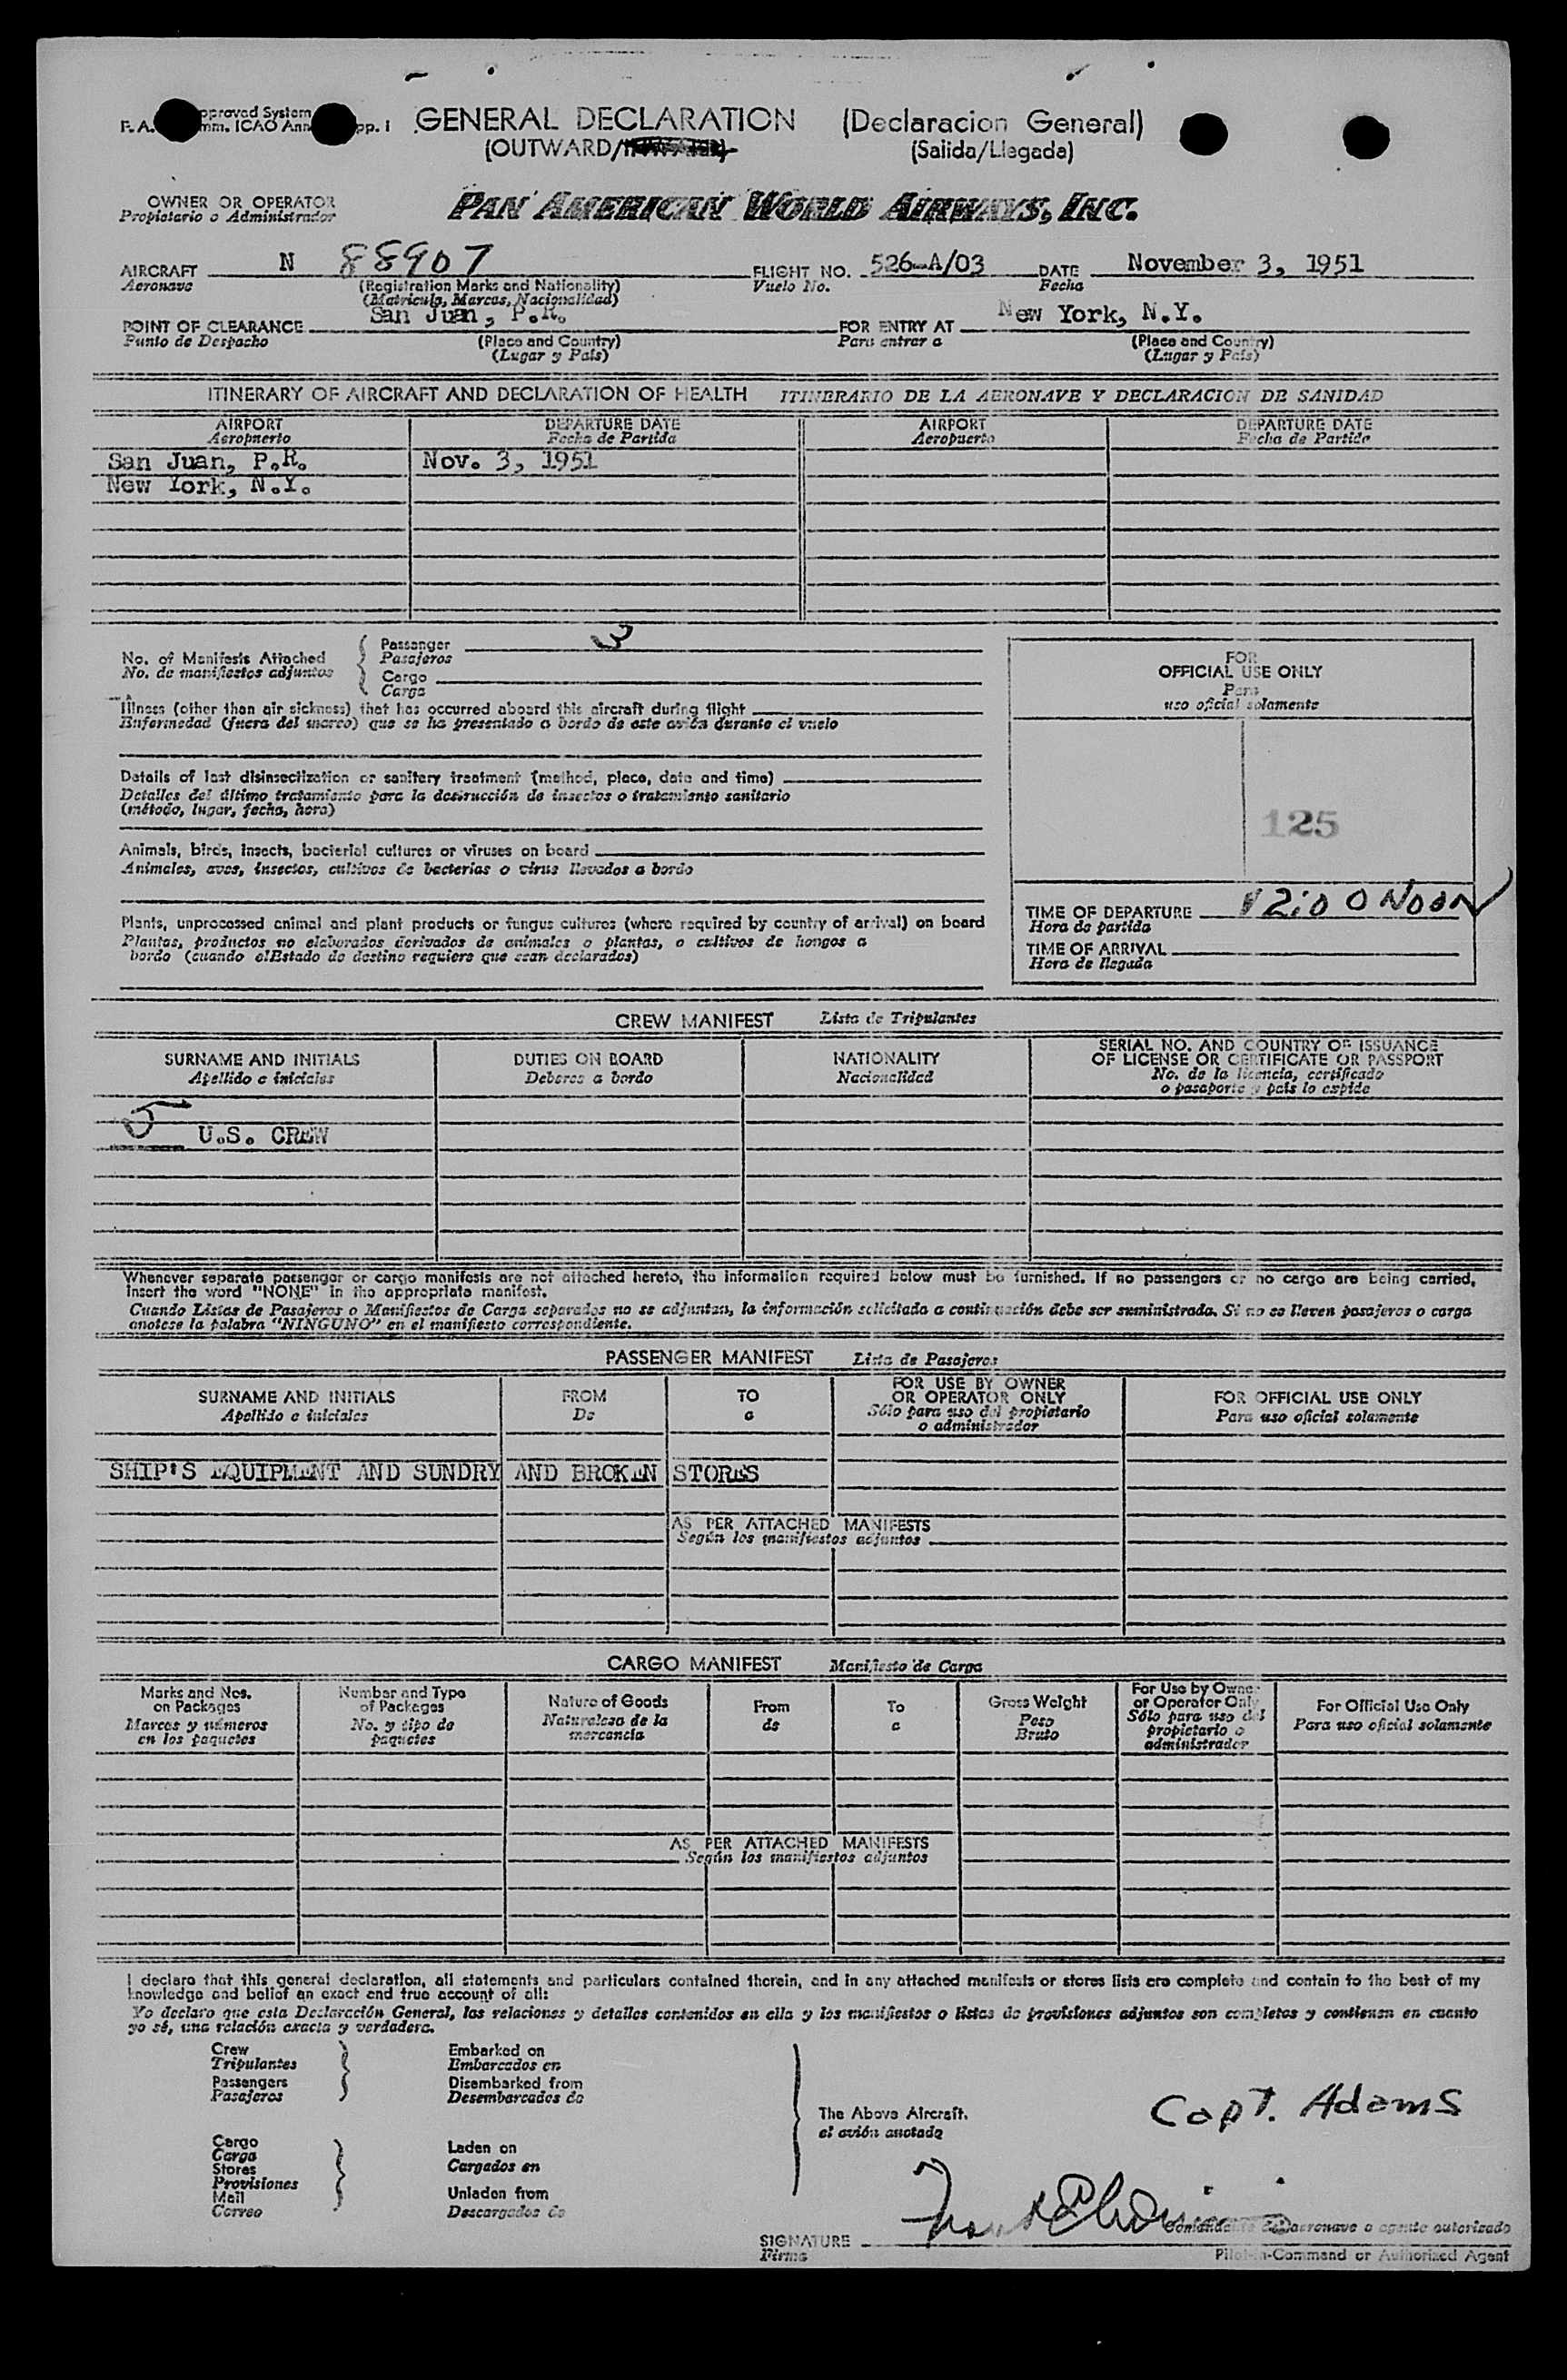 pproved System
F. A. mm. ICAO Ann pp. 1
GENERAL DECLARATION (Declaracion General)
(OUTWARD/ (Salida/Llegada)
OWNER OR OPERATOR
Propietario o Administrador
PAN AMERICAN WORLD AIRWAYS, INC.
AIRCRAFT N 88907 FLIGHT NO. 526-A/03 DATE November 3, 1951
Aeronave (Registration Marks and Nationality) Vuelo No. Fecha
(Matricula, Marcas, Nacionalidad)
POINT OF CLEARANCE San Juan, P.R. FOR ENTRY AT New York, N.Y.
Punto de Despacho (Place and Country) Para entrar a (Place and Country)
(Lugar y País) (Lugar y País)
ITINERARY OF AIRCRAFT AND DECLARATION OF HEALTH ITINERARIO DE LA AERONAVE Y DECLARACION DE SANIDAD
AIRPORT DEPARTURE DATE AIRPORT DEPARTURE DATE
Aeropuerto Fecha de Partida Aeropuerto Fecha de Partida
San Juan, P.R. Nov. 3, 1951
New York, N.Y.
No. of Manifests Attached
No. de manifiestos adjuntos
Passenger 3
Pasajeros
Cargo
Carga
Illness (other than air sickness) that has occurred aboard this aircraft during flight
Enfermedad (fuera del mareo) que se ha presentado a bordo de este avión durante el vuelo
Details of last disinsectization or sanitary treatment (method, place, date and time)
Detalles del último tratamiento para la destrucción de insectos o tratamiento sanitario
(método, lugar, fecha, hora)
Animals, birds, insects, bacterial cultures or viruses on board
Animales, aves, insectos, cultivos de bacterias o virus llevados a bordo
Plants, unprocessed animal and plant products or fungus cultures (where required by country of arrival) on board
Plantas, productos no elaborados derivados de animales o plantas, o cultivos de hongos a
bordo (cuando elEstado de destino requiere que sean declarados)
FOR
OFFICIAL USE ONLY
Para
uso oficial solamente
125
TIME OF DEPARTURE 12:00 NOON
Hora de partida
TIME OF ARRIVAL
Hora de llegada
CREW MANIFEST Lista de Tripulantes
SURNAME AND INITIALS DUTIES ON BOARD NATIONALITY SERIAL NO. AND COUNTRY OF ISSUANCE
OF LICENSE OR CERTIFICATE OR PASSPORT
Apellido e iniciales Deberes a bordo Nacionalidad No. de la licencia, certificado
o pasaporte y país lo expide
5 U.S. CREW
Whenever separate passenger or cargo manifests are not attached hereto, the information required below must be furnished. If no passengers or no cargo are being carried,
insert the word "NONE" in the appropriate manifest.
Cuando Listas de Pasajeros o Manifiestos de Carga separados no se adjuntan, la información solicitada a continuación debe ser suministrada. Si no se lleven pasajeros o carga
anotese la palabra "NINGUNO" en el manifiesto correspondiente.
PASSENGER MANIFEST Lista de Pasajeros
SURNAME AND INITIALS FROM TO FOR USE BY OWNER
OR OPERATOR ONLY FOR OFFICIAL USE ONLY
Apellido e iniciales De a Sólo para uso del propietario
o administrador Para uso oficial solamente
SHIP'S EQUIPMENT AND SUNDRY AND BROKEN STORES
AS PER ATTACHED MANIFESTS
Según los manifiestos adjuntos
CARGO MANIFEST Manifiesto de Carga
Marks and Nos.
on Packages
Marcas y números
en los paquetes
Number and Type
of Packages
No. y tipo de
paquetes
Nature of Goods
Naturaleza de la
mercancía
From
de
To
a
Gross Weight
Peso
Bruto
For Use by Owner
or Operator Only
Sólo para uso del
propietario o
administrador
For Official Use Only
Para uso oficial solamente
AS PER ATTACHED MANIFESTS
Según los manifiestos adjuntos
I declare that this general declaration, all statements and particulars contained therein, and in any attached manifests or stores lists are complete and contain to the best of my
knowledge and belief an exact and true account of all:
Yo declaro que esta Declaración General, las relaciones y detalles contenidos en ella y los manifiestos o listas de provisiones adjuntos son completos y contienen en cuanto
yo sé, una relación exacta y verdadera.
Crew
Tripulantes
Passengers
Pasajeros
Embarked on
Embarcados en
Disembarked from
Desembarcados de
Cargo
Carga
Stores
Provisiones
Mail
Correo
Laden on
Cargados en
Unladen from
Descargados de
The Above Aircraft.
el avión anotado
Capt. Adams
SIGNATURE
Firma
Comandante aeronave o agente autorizado
Pilot-in-Command or Authorized Agent